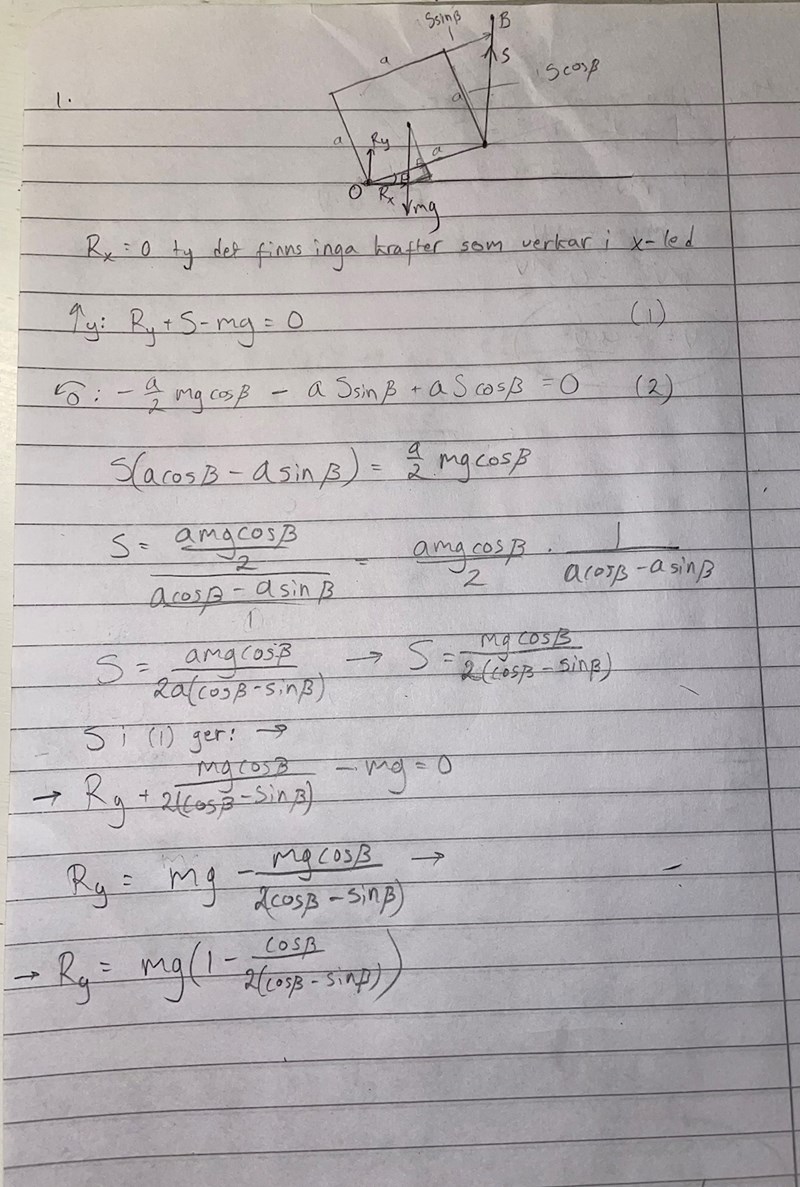 1.
Ssinβ
B
a
S
Scosβ
a
a
Ry
a
β
O
Rx
mg
Rx = 0 ty det finns inga krafter som verkar i x-led
↑y: Ry + S - mg = 0 (1)
↶O: - a/2 mg cosβ - a S sinβ + a S cosβ = 0 (2)
S(a cosβ - a sinβ) = a/2 mg cosβ
S = (amg cosβ / 2) / ((a cosβ - a sinβ) / 1) = amg cosβ / 2 · 1 / (a cosβ - a sinβ)
S = amg cosβ / 2a(cosβ - sinβ) → S = mg cosβ / 2(cosβ - sinβ)
S i (1) ger: →
→ Ry + mg cosβ / 2(cosβ - sinβ) - mg = 0
Ry = mg - mg cosβ / 2(cosβ - sinβ) →
→ Ry = mg(1 - cosβ / 2(cosβ - sinβ))